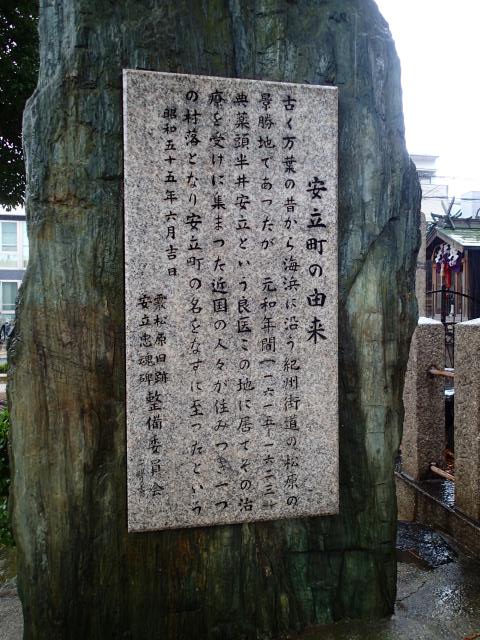 安立町の由来
古く万葉の昔から海浜に沿う紀州街道の松原の
景勝地であつたが 元和年間(一六一五-一六二三)
典薬頭半井安立という良医この地に居てその治
療を受けに集まつた近国の人々が住みつき一つ
の村落となり安立町の名をなすに至つたという
昭和五十五年六月吉日
霰松原旧跡
安立忠魂碑
整備委員会